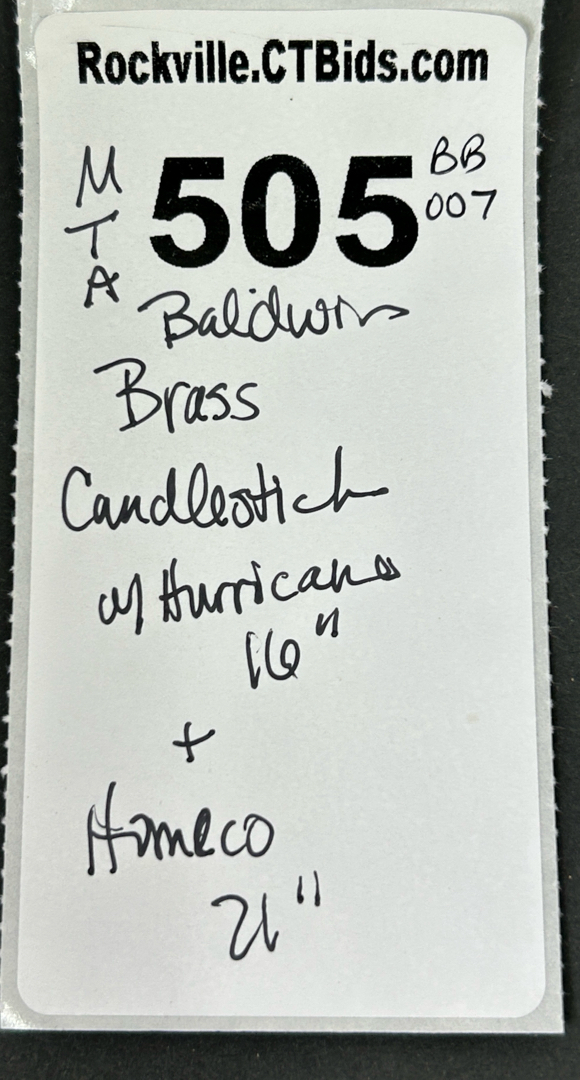 Rockville.CTBids.com
MTA
505
BB
007
Baldwin
Brass
Candlestick
w/ Hurricane
16"
+
Homeco
21"